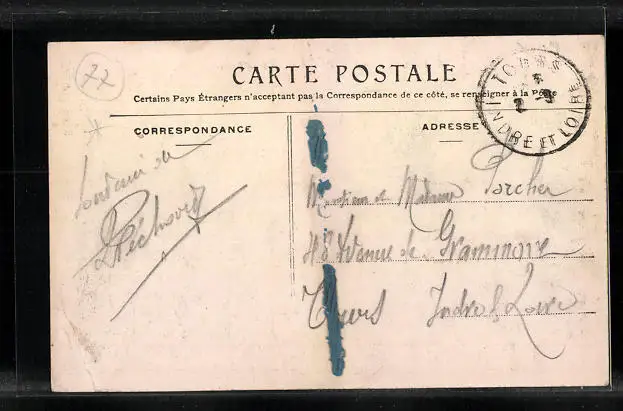 77
CARTE POSTALE
Certains Pays Étrangers n'acceptant pas la Correspondance de ce côté, se renseigner à la Poste
CORRESPONDANCE
ADRESSE
TOURS
INDRE ET LOIRE
Souvenir de
Monsieur et Madame Porcher
48 Avenue de Grammont
Tours Indre & Loire